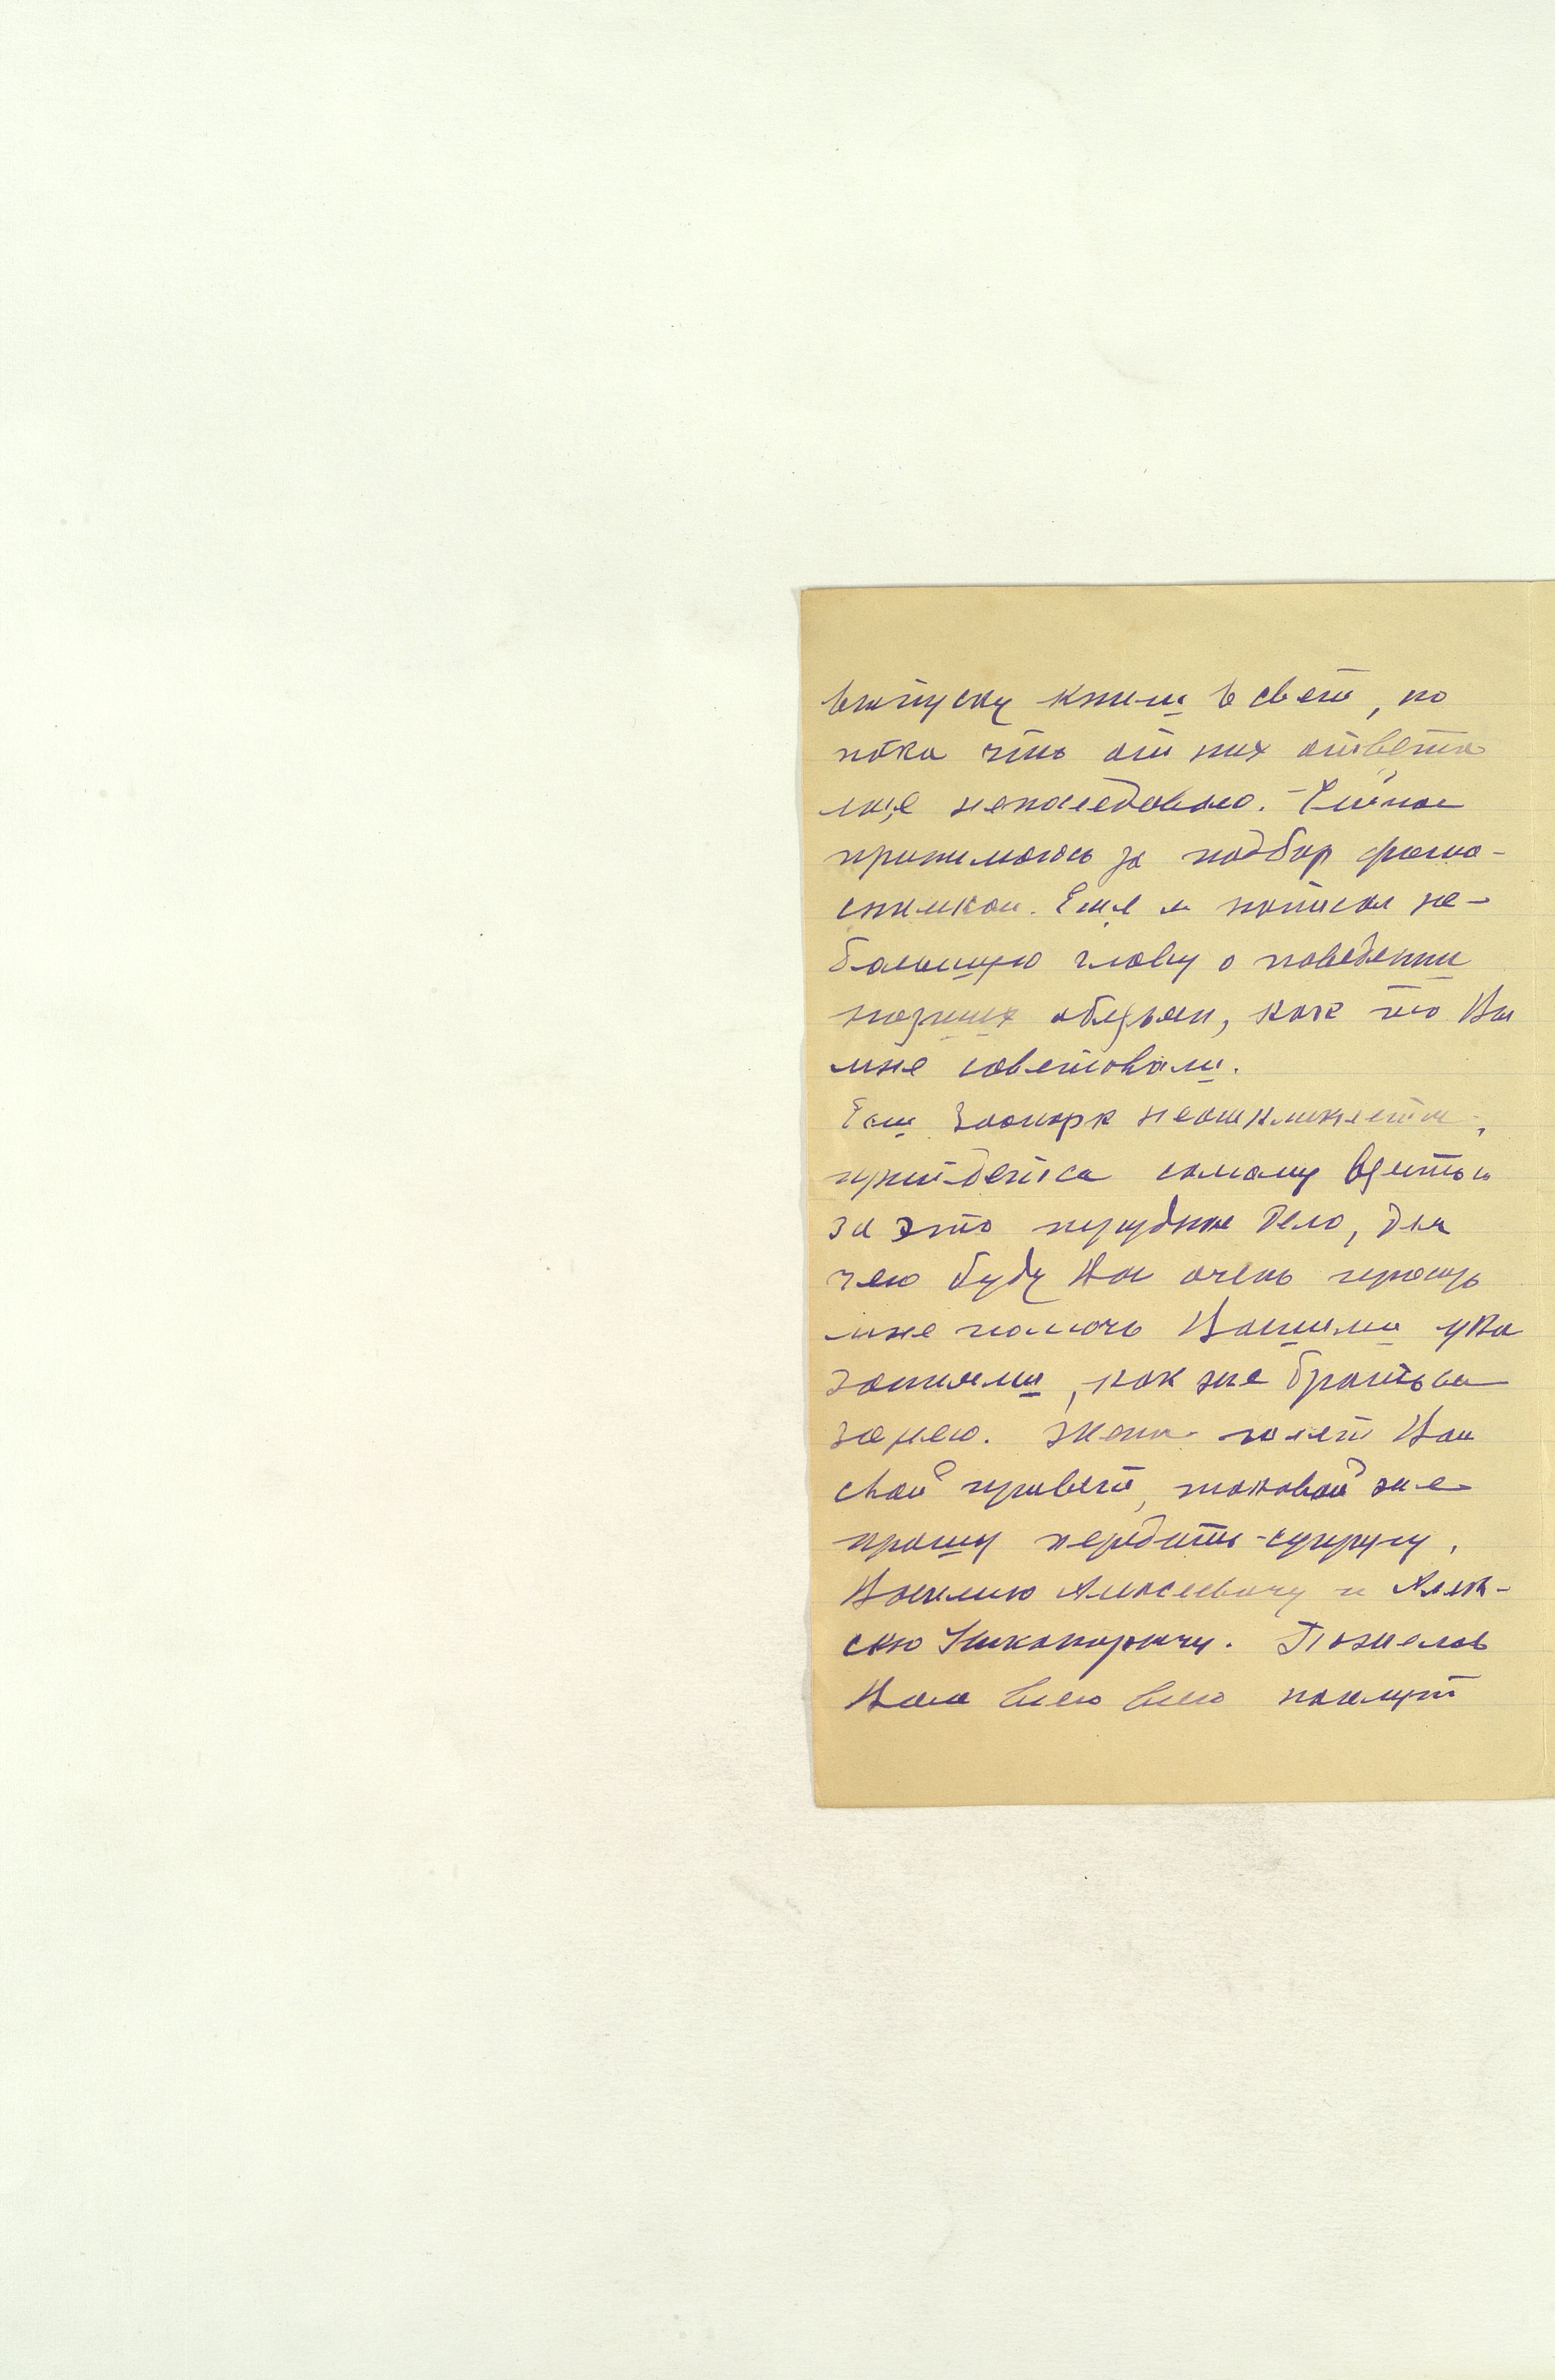 выпуску книги в свет, но
пока что от них ответа
еще непоследовало. Сейчас
принимаюсь за подбор фото-
снимков. Еще я написал не-
большую главу о поведении
низших обезьян, как то Вы
мне советовали.
Если Зоопарк неоткликнется,
прийдется самому взяться
за это трудное дело, для
чего буду Вас очень просить
мне помочь Вашими ука
заниями, как же браться
за него. Жена шлет Вам
свой привет, таковой же
прошу передать супругу,
Василию Алексеевичу и Алек-
сею Никаноровичу. Пожелав
Вам всего всего